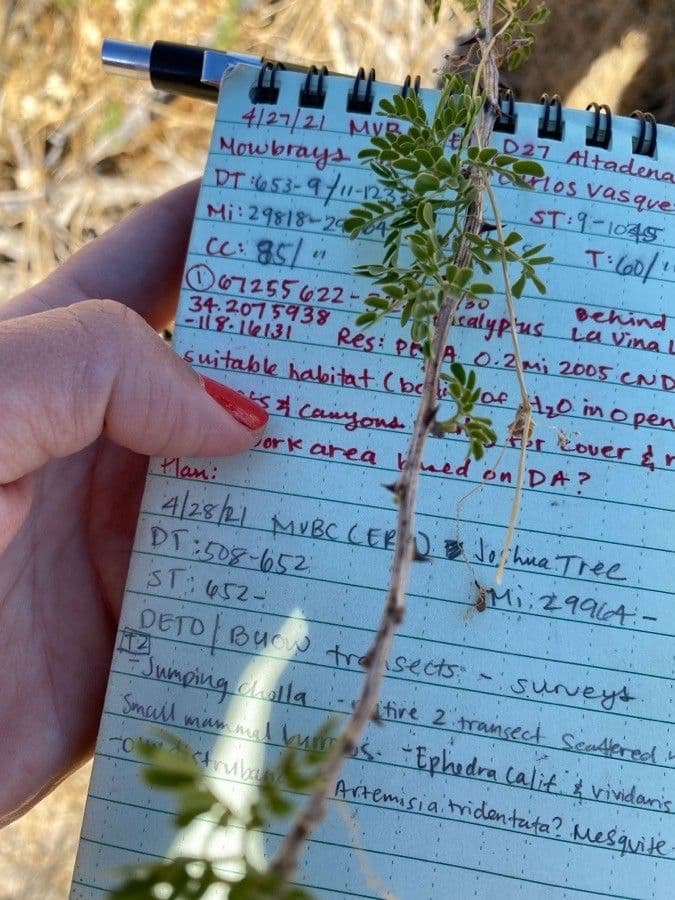 4/27/21 MVB D27 Altadena
Mowbrays Carlos Vasque
DT:653-9/11-123
Mi:29818-29 ST:9-1045
CC: 85/" T:60/"
① 67255622- Behind
34.2075938 La Vina
-118.16131 Res: 0.2mi 2005 CND
suitable habitat ( of H2O in open
& canyons. for cover &
work area based on DA?
Plan:
4/28/21 MVBC Joshua Tree
DT:508-652
ST: 652- Mi: 29964-
DETO/BUOW transects - surveys
T2
-Jumping cholla - entire 2 transect scattered
small mammal burrows. -Ephedra calif. & vividaris
Artemisia tridentata? Mesquite